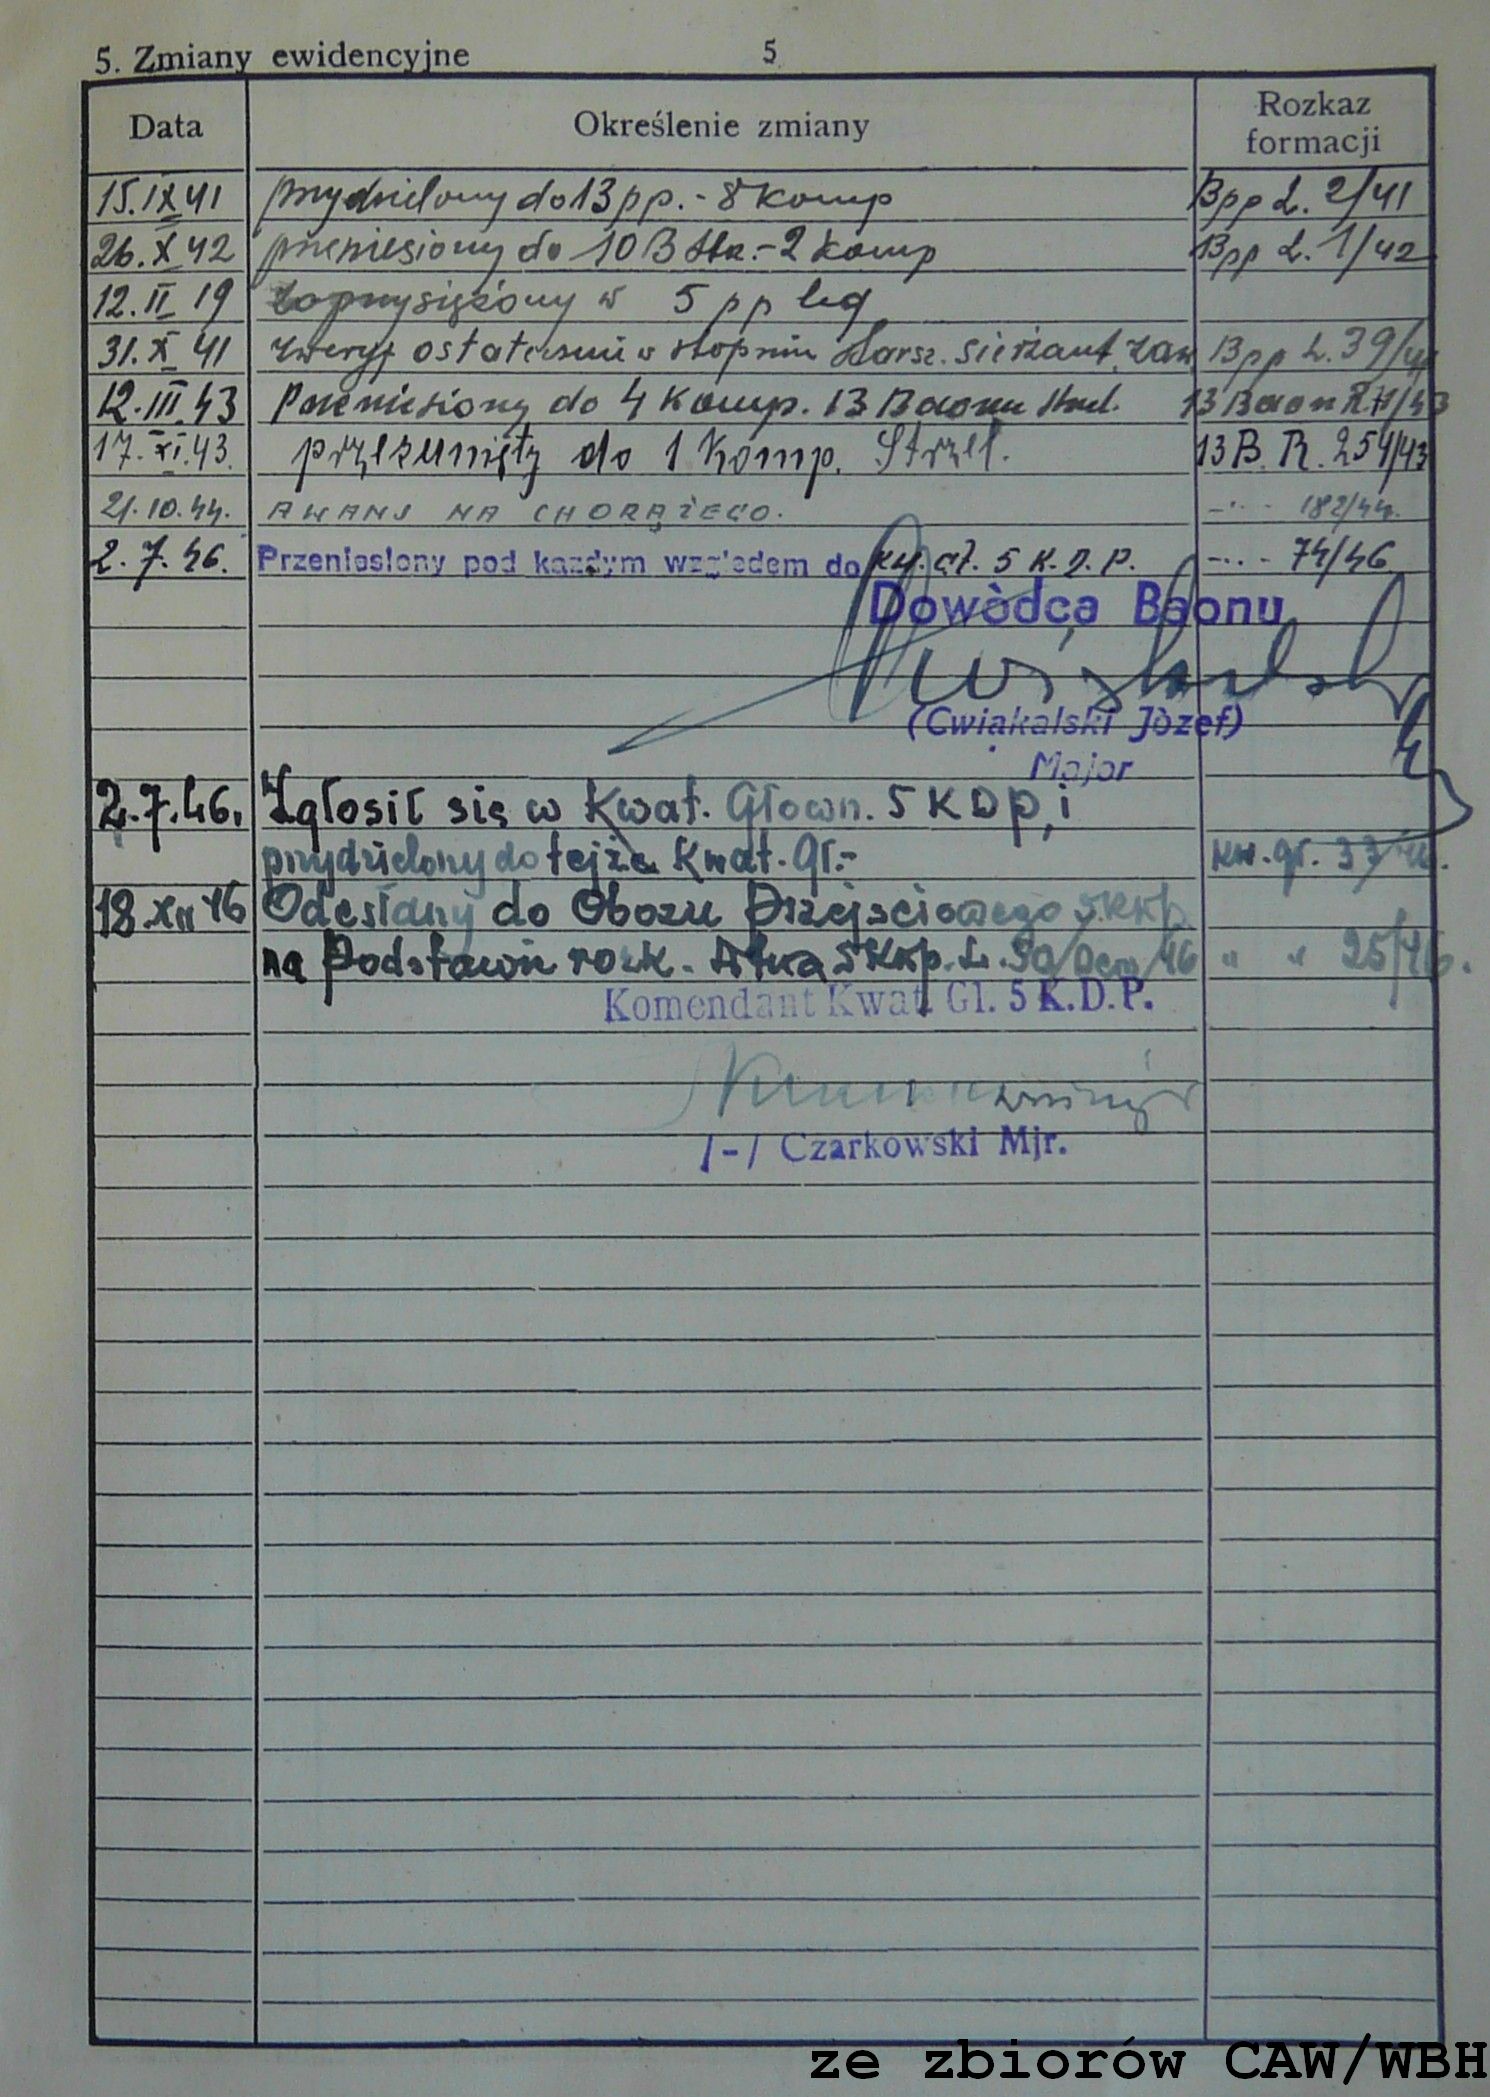 5. Zmiany ewidencyjne 5
Data Określenie zmiany Rozkaz formacji
15.IX 41 przydzielony do 13 pp. - 8 komp Bpp L. 2/41
26. X 42 przeniesiony do 10 B Stz. - 2 komp Bpp L. 1/42
12. II 19 zaprzysiężony w 5 pp leg
31. X 41 zweryf ostatecznie w stopniu starsz. sierżant. zaw. Bpp L. 39/41
12. III. 43 Przeniesiony do 4 komp. 13 Baonu Strzel. 13 Baon R. /43
17. XI. 43. przesunięty do 1 komp. Strzel. 13 B. R. 254/43
21. 10. 44. AWANS NA CHORĄŻEGO. -··- 182/44.
2. 7. 46. Przeniesiony pod każdym względem do kw. gł. 5 K. D. P. -··- 74/46
Dowòdca Baonu
(Cwiąkalski Jòzef)
Major
2. 7. 46. Zgłosił się w Kwat. Głown. 5 KDP, i
przydzielony do tejże Kwat. Gł.- Kw. gł. 37/46.
18 XII 46 Odesłany do Obozu Przejściowego 5 KKP.
na Podstawie rozk. 5 KKp. L. 50/ /46 " " 25/46.
Komendant Kwat. Gl. 5 K.D.P.
/-/ Czarkowski Mjr.
ze zbiorów CAW/WBH